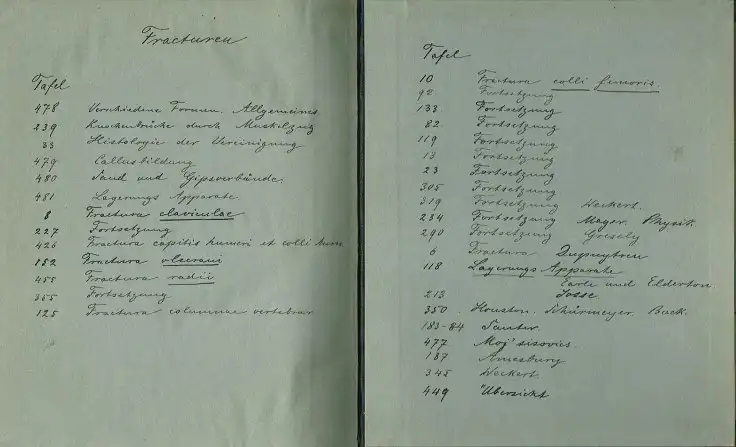 Fracturen
Tafel
478 Verschiedene Formen. Allgemeines
239 Knochenbrüche durch Muskelzug
33 Histologie der Vereinigung
479 Callusbildung
480 Sand und Gipsverbände.
481 Lagerungs Apparate.
8 Fractura claviculae
227 Fortsetzung
426 Fractura capitis humeri et colli hum
152 Fractura olecrani
455 Fractura radii
355 Fortsetzung
125 Fractura columnae vertebrar
Tafel
10 Fractura colli femoris.
92 Fortsetzung
133 Fortsetzung
82 Fortsetzung
119 Fortsetzung
13 Fortsetzung
23 Fortsetzung
305 Fortsetzung
219 Fortsetzung Weckert.
234 Fortsetzung Mayer. Physik.
290 Fortsetzung Gresely
6 Fractura Dupuytren
118 Lagerungs Apparate
Earle und Elderton
213 Josse
350 Houston. Schürmeyer. Buck.
183-84 Sauter.
477 Mojsisovics.
187 Amesbury
345 Weckert.
449 Übersicht